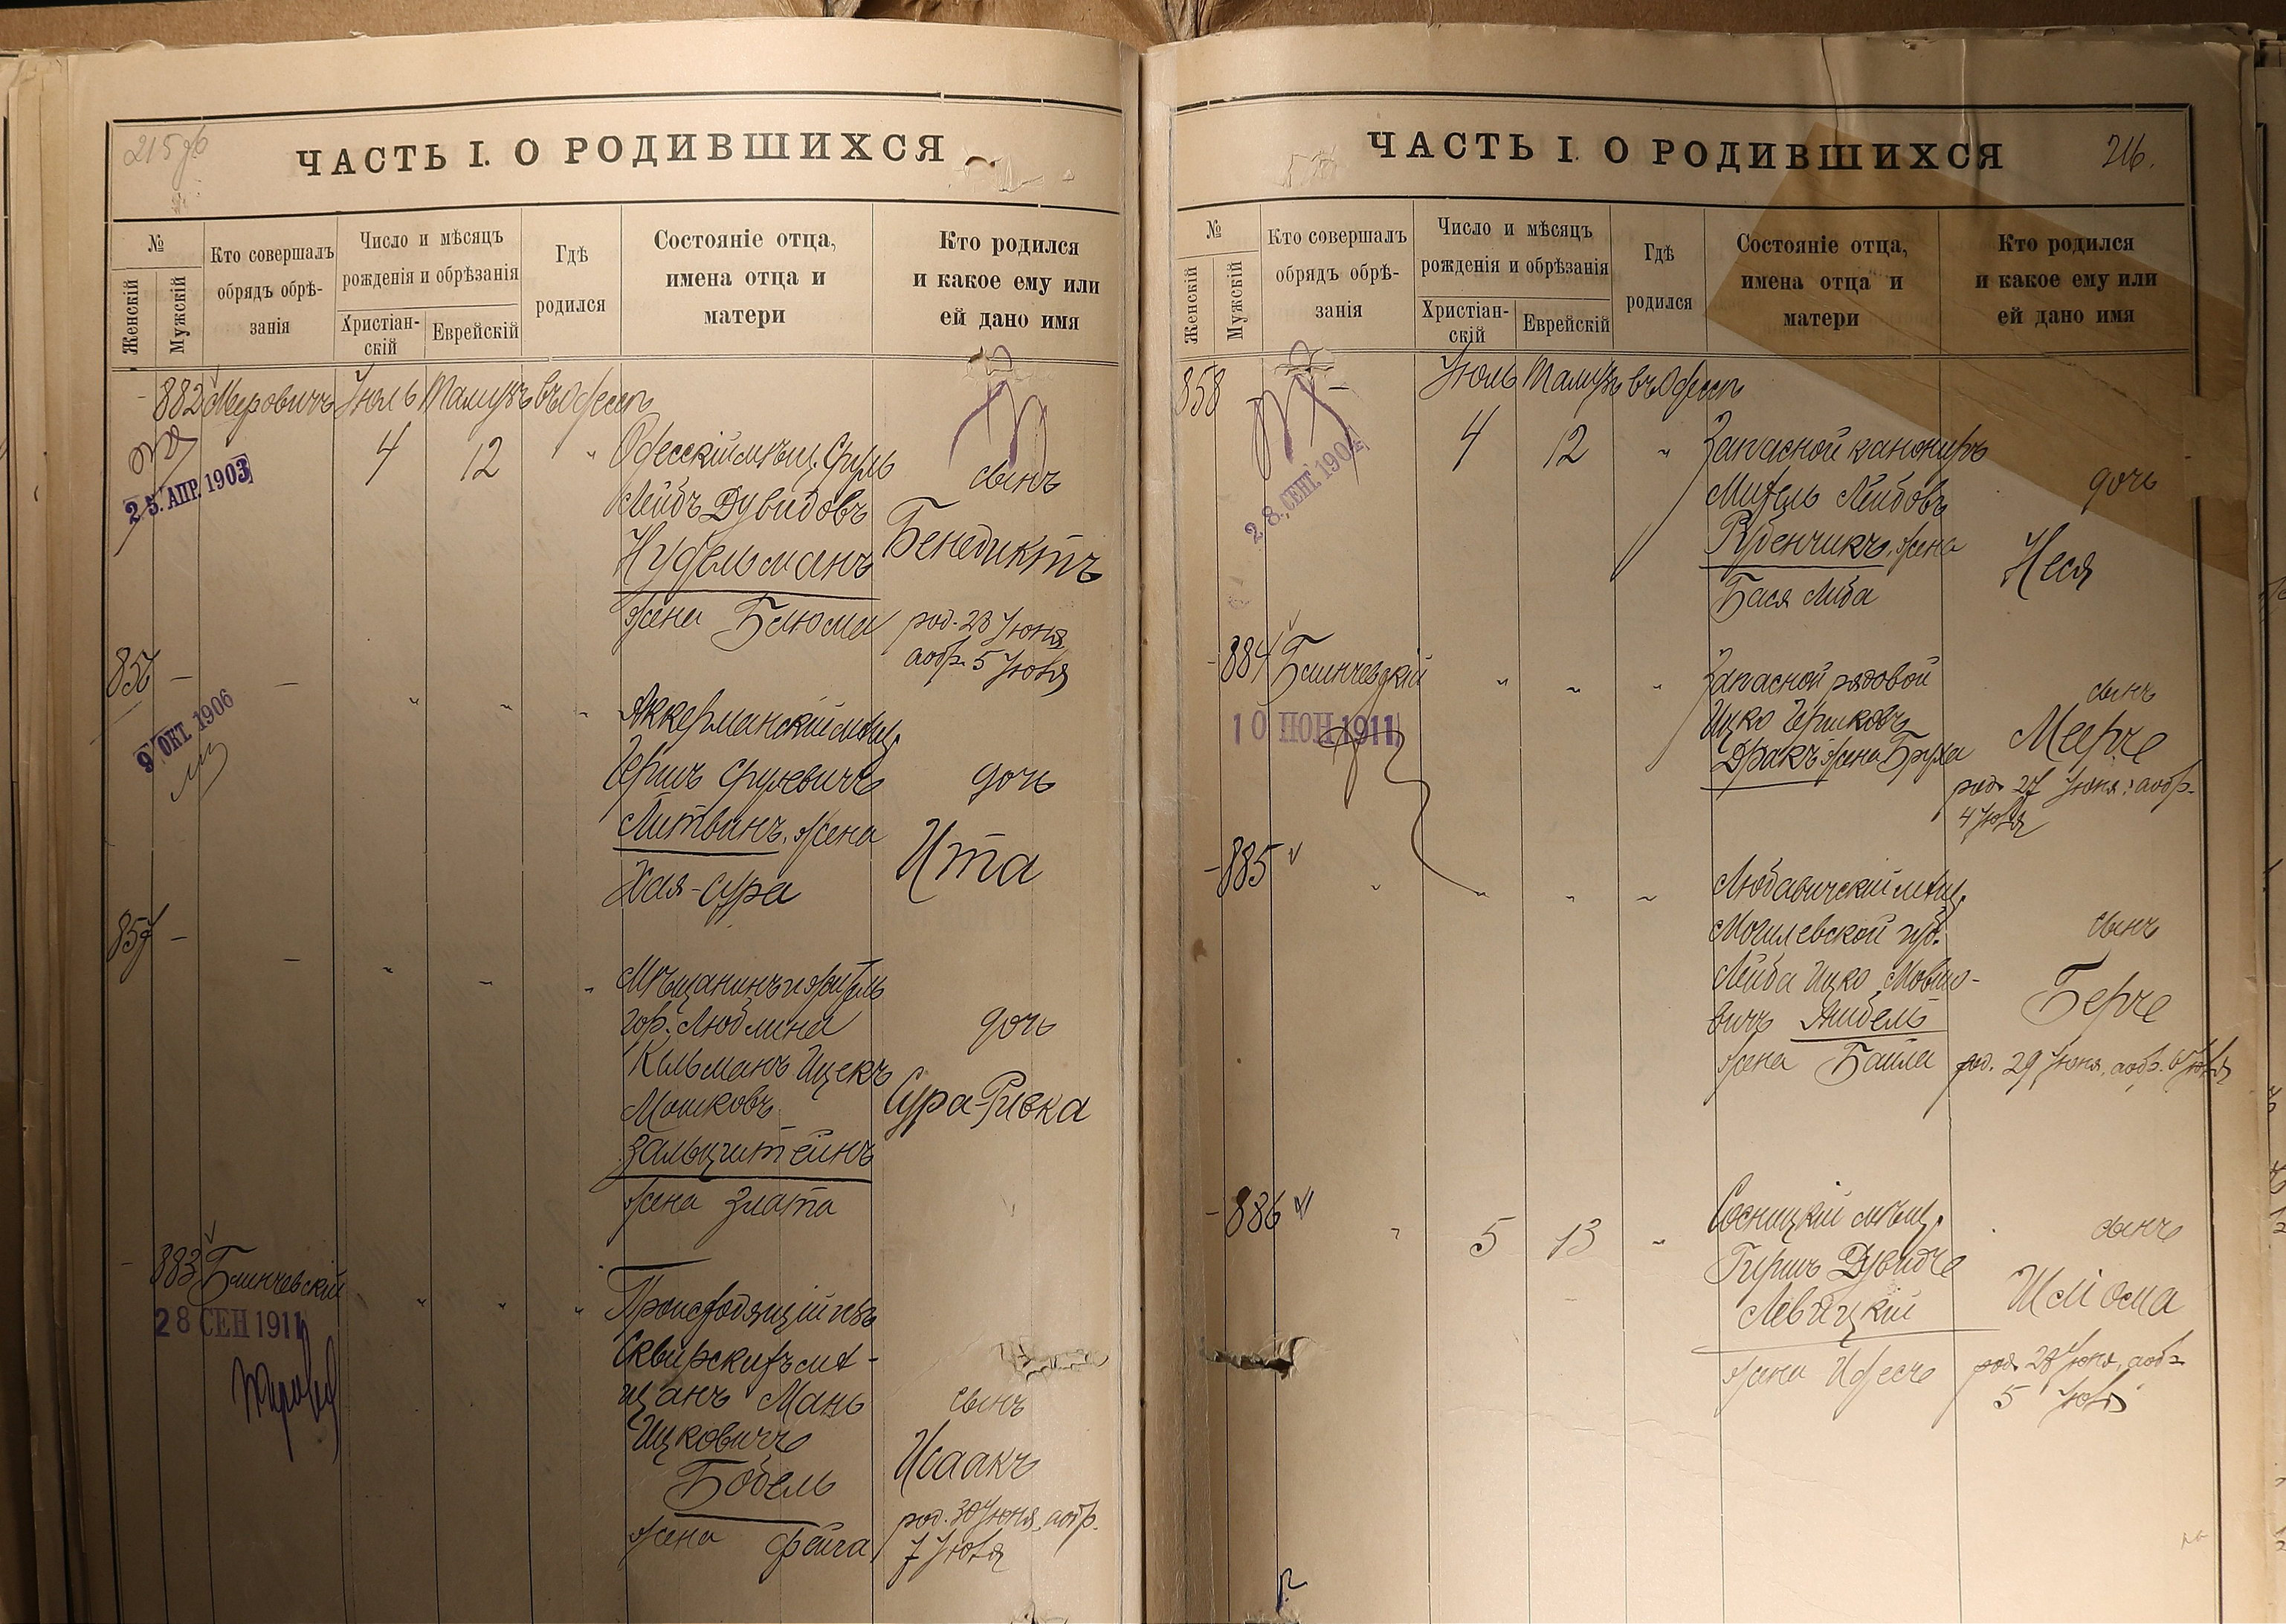 215 об
ЧАСТЬ I. О РОДИВШИХСЯ
№
Женскій
Мужскій
Кто совершалъ
обрядъ обрѣ-
занія
Число и мѣсяцъ
рожденія и обрѣзанія
Христіан-
скій
Еврейскій
Гдѣ
родился
Состояніе отца,
имена отца и
матери
Кто родился
и какое ему или
ей дано имя
- 882 Меровичъ Іюль Тамузъ въ Одессѣ
4 12 " Одесскій мѣщ. Сруль
25. АПР. 1903
Лейбъ Дувидовъ
Нудельманъ
жена Блюма
сынъ
Бенедиктъ
род. 28 Іюня
а обр. 5 Іюля
856 - - " " "
9 ОКТ. 1906
Аккерманскій мѣщ.
Гершъ Срулевичъ
Литвинъ, жена
Хая-Сура
дочь
Ита
857 - - " " "
Мѣщанинъ и житель
гор. Люблина
Кальманъ Ицекъ
Мошковъ
Зальцштейнъ
жена Злата
дочь
Сура-Ривка
- 883 Блинчевскій " " "
28 СЕН 1911
Происходящій изъ
Сквирскихъ мѣ-
щанъ Мань
Ицковичъ
Бобель
жена Фейга
сынъ
Исаакъ
род. 30 Іюня, а обр.
7 Іюля
ЧАСТЬ I. О РОДИВШИХСЯ
216.
№
Женскій
Мужскій
Кто совершалъ
обрядъ обрѣ-
занія
Число и мѣсяцъ
рожденія и обрѣзанія
Христіан-
скій
Еврейскій
Гдѣ
родился
Состояніе отца,
имена отца и
матери
Кто родился
и какое ему или
ей дано имя
858 - Іюль Тамузъ въ Одессѣ
28. СЕНТ. 1904
4 12 " Запасной канониръ
Михель Лейбовъ
Рубенчикъ, жена
Бася Либа
дочь
Неся
- 884 Блинчевскій " " "
10 ІЮН 1911
Запасной рядовой
Ицко Гершковъ
Дракъ жена Бруха
сынъ
Мееръ
род. 27 Іюня, а обр.
4 Іюля
- 885 " " " "
Любавичскій мѣщ.
Могилевской губ.
Лейба Ицко Мовшо-
вичъ
жена Байла
сынъ
Беръ
род. 29 Іюня, а обр. 6 Іюля
- 886 " 5 13 "
Сосницкій мѣщ.
Гиршъ Дувидъ
Левицкій
жена Идесъ
сынъ
Шліома
род. 28 Іюня, а обр.
5 Іюля